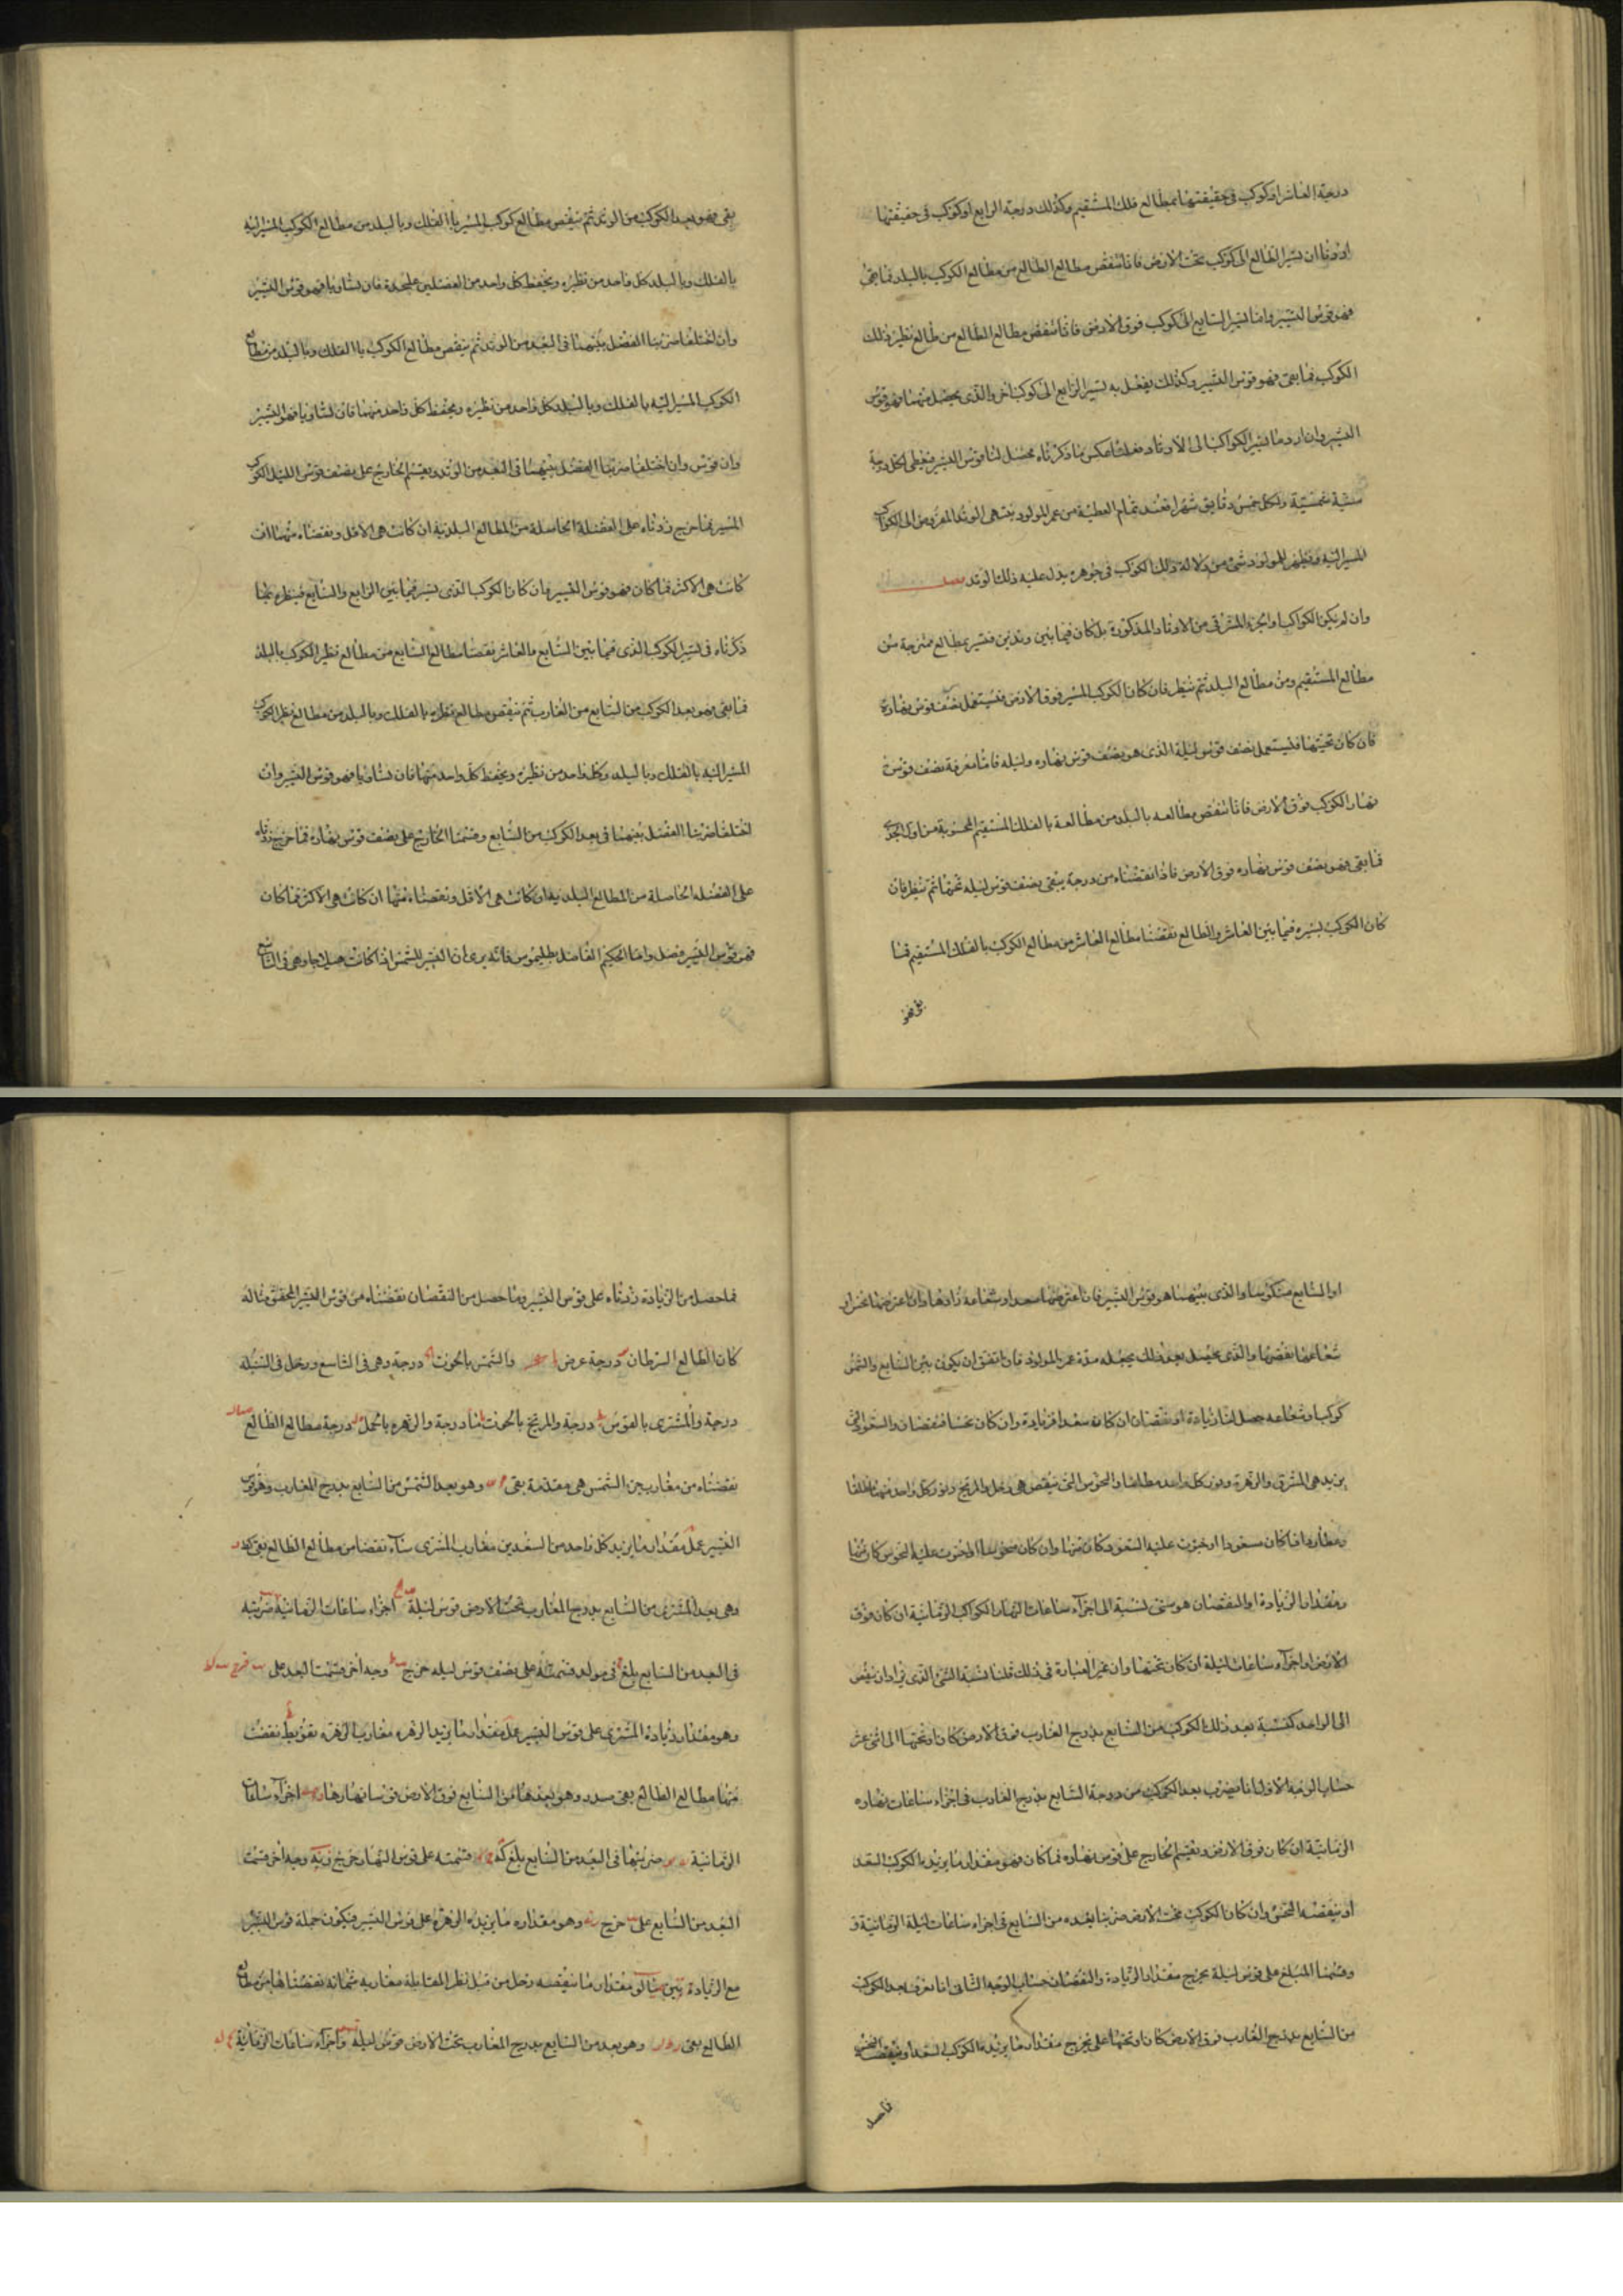 درجة العاشر او كوكب فى حقيقتها بمطالع فلك المستقيم وكذلك درجة الرابع او كوكب فى حقيقتها
اردنا ان نسير الطالع الى كوكب تحت الارض فانا ننقص مطالع الطالع من مطالع الكوكب بالبلد فما بقى
فهو قوس التسيير واما لتسير السابع الى كوكب فوق الارض فانا ننقص مطالع الطالع من طالع نظير ذلك
الكوكب فما بقى فهو قوس التسيير وكذلك يفعل به تسير الرابع الى كوكب اخر والذى يحصل منهما فهو قوس
التسيير وان اردنا تسير الكواكب الى الاوتاد فعلنا عكس ما ذكرناه يحصل لنا قوس التسيير فنعطى لكل درجة
سنة شمسية ولكل خمس دقايق شهرا فعند تمام العطية من عمر المولود ينتهى الوتد المفروض الى الكواكب
المسير اليه ويظهر للمولود شئ من دلالة ذلك الكوكب فى جوهره يدل عليه ذلك الوتد فصل
وان لم يكن الكواكب او الجزء المشرقى من الاوتاد المذكورة بل كان فيما بين وتدين فتسير بمطالع ممتزجة من
مطالع المستقيم ومن مطالع البلد ثم ننظر فان كان الكوكب المسير فوق الارض فنستعمل نصف قوس نهاره
فان كان تحتها فليستعمل نصف قوس ليلة الذى هو نصف قوس نهاره وليله فاما معرفة نصف قوس
نهار الكوكب فوق الارض فانا ننقص مطالعه بالبلد من مطالعه بالفلك المستقيم المحسوبة من اول الجدى
فما بقى فهو نصف قوس نهاره فوق الارض فاذا نقصناه من درجة يبقى نصف قوس ليله تحتها ثم ننظر فان
كان الكوكب نسيره فيما بين العاشر والطالع نقصنا مطالع العاشر من مطالع الكوكب بالفلك المستقيم فما
بقى فهو
بقى فهو بعد الكوكب من الوتد ثم ننقص مطالع كوكب المسير بالفلك وبالبلد من مطالع الكوكب المسير اليه
بالفلك وبالبلد كل واحد من نظيره ويحفظ كل واحد من الفضلين عليحدة فان تساويا فهو قوس التسيير
وان اختلفا ضربنا الفضل بينهما فى البعد من الوتد ثم ننقص مطالع الكوكب بالفلك وبالبلد من مطالع
الكوكب المسير اليه بالفلك وبالبلد كل واحد من نظيره ويحفظ كل واحد منهما فان تساويا فهو التسيير
وان قوس وان اختلفا ضربنا الفضل بينهما فى البعد من الوتد ويقسم الخارج على نصف قوس الليل الكوكب
المسير فما خرج زدناه على الفضلة الحاصلة من المطالع البلدية ان كانت هى الاقل ونقصناه منها ان
كانت هى الاكثر فما كان فهو قوس التسيير فان كان الكوكب الذى تسير فيما بين الرابع والسابع فينظر بما
ذكرناه فى تسير الكوكب الذى فيما بين السابع والعاشر نقصنا مطالع السابع من مطالع نظير الكوكب بالبلد
فما بقى فهو بعد الكوكب من السابع من الغارب ثم ننقص مطالع نظيره بالفلك وبالبلد من مطالع نظير الكوكب
المسير اليه بالفلك وبالبلد وكل واحد من نظيره ويحفظ كل واحد منهما فان تساويا فهو قوس التسيير وان
اختلفا ضربنا الفضل بينهما فى بعد الكوكب من السابع وقسمنا الخارج على نصف قوس نهاره فما خرج زدناه
على الفضله الحاصلة من المطالع البلدية ان كانت هى الاقل ونقصناه منها ان كانت هى الاكثر فما كان
فهو قوس التسيير فصل واما الحكيم الفاضل بطليموس فانه يرى ان التسيير للشمس اذا كانت هيلاجا وهى فى التاسع
او السابع منكوسا والذى بينهما هو قوس التسيير فان اعترضهما سعد او شعاعه زادها وان اعترضها نحس او
شعاعها نقصها والذى يحصل بعد ذلك يجعله مدة عمر المولود فان اتفق ان يكون بين السابع والشمس
كوكب او شعاعه حصل لنا زيادة او نقصان ان كان سعدا فزيادة وان كان نحسا فنقصان والسعود التى
يزيد هى المشترى والزهرة ودون كل واحد مطلقا والنحوس التى تنقص هى زحل والمريخ ودون كل واحد منهما مطلقا
وعطارد اذا كان مسعودا او حيزت عليه السعود كان منها وان كان منحوسا او احتوت عليه النحوس كان منها
ومقدار الزيادة او النقصان هو شئ نسبته الى اجزآء ساعات النهار الكواكب الزمانية ان كان فوق
الارض او اجزآء ساعات ليلة ان كان تحتها وان غير العبارة فى ذلك قلنا نسبة الشئ الذى يزاد او ينقص
الى الواحد كنسبة بعد ذلك الكوكب من السابع بدرج الغارب فوق الارض كان او تحتها الى اثنى عشر
حساب الوجه الاول انا نضرب بعد الكوكب من درجة السابع بدرج الغارب فى اجزاء ساعات نهاره
الزمانية ان كان فوق الارض ونقسم الخارج على قوس نهاره فما كان فهو مقدار ما يزيد بالكوكب السعد
او ينقصه النحس وان كان الكوكب تحت الارض ضربنا بعده من السابع فى اجزاء ساعات ليلة الزمانية و
وقسمنا المبلغ على قوس ليلة يخرج مقدار الزيادة والنقصان حساب الوجه الثانى انا نعرف بعد الكوكب
من السابع بدرج الغارب فوق الارض كان او تحتها على يخرج مقدار ما يزيده الكوكب السعد او ينقصه النحس
فما حصل
فما حصل من الزيادة زدناه على قوس التسيير وما حصل من النقصان نقصناه من قوس التسيير المحقق مثاله
كان الطالع السرطان درجة عرض والشمس بالحوت درجة وهى فى التاسع وزحل فى السنبلة
درجة والمشترى بالقوس درجة والمريخ بالحوت درجة والزهره بالحمل درجة مطالع الطالع
نقصناه من مغارب جزء الشمس هى مقدمة بقى وهو بعد الشمس من السابع بدرج المغارب وهو قوس
التسيير عمل مقدار ما يزيد كل واحد من السعدين مغارب المشترى نقصنا من مطالع الطالع بقى
وهى بعد المشترى من السابع بدرج المغارب تحت الارض قوس ليلة اجزاء ساعات الزمانية ضربته
فى البعد من السابع بلغ قسمته على نصف قوس ليله خرج وجه اخر قسمت البعد على خرج
وهو مقدار زيادة المشترى على قوس التسيير عمل مقدار ما يزيد الزهره مغارب الزهره نقصت
منها مطالع الطالع بقى وهو بعدها من السابع فوق الارض قوس نهارها اجزآء ساعات
الزمانية ضربتها فى البعد من السابع بلغ قسمته على قوس النهار خرج وجه اخر قسمت
البعد من السابع على خرج وهو مقداره ما يزيده الزهرة على قوس التسيير فيكون جملة قوس التسيير
مع الزيادة مقدار ما ينقصه زحل من قبل نظر المقابلة مغاربه ثمانه نقصناها من مطالع
الطالع بقى وهو بعد من السابع بدرج المغارب تحت الارض قوس ليلة واجزاء ساعات الزمانية